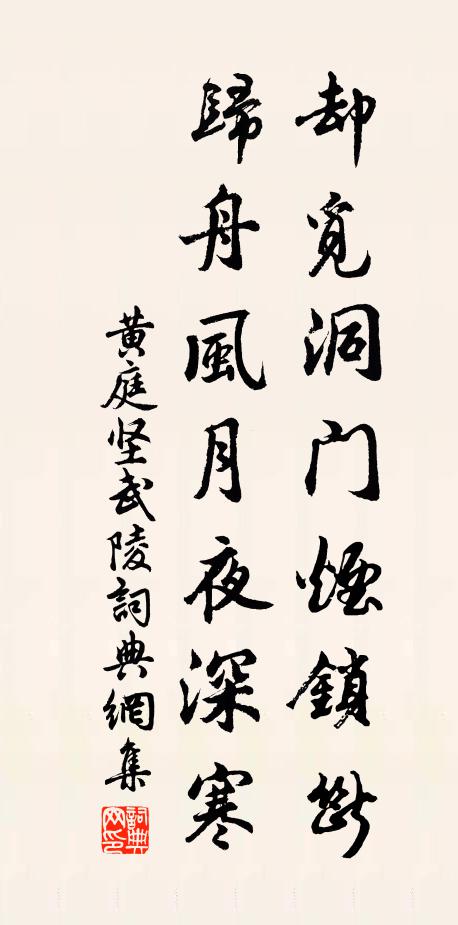 却觅洞门煙鎖斷
歸舟風月夜深寒
黄庭坚武陵詞典網集
詞典網印